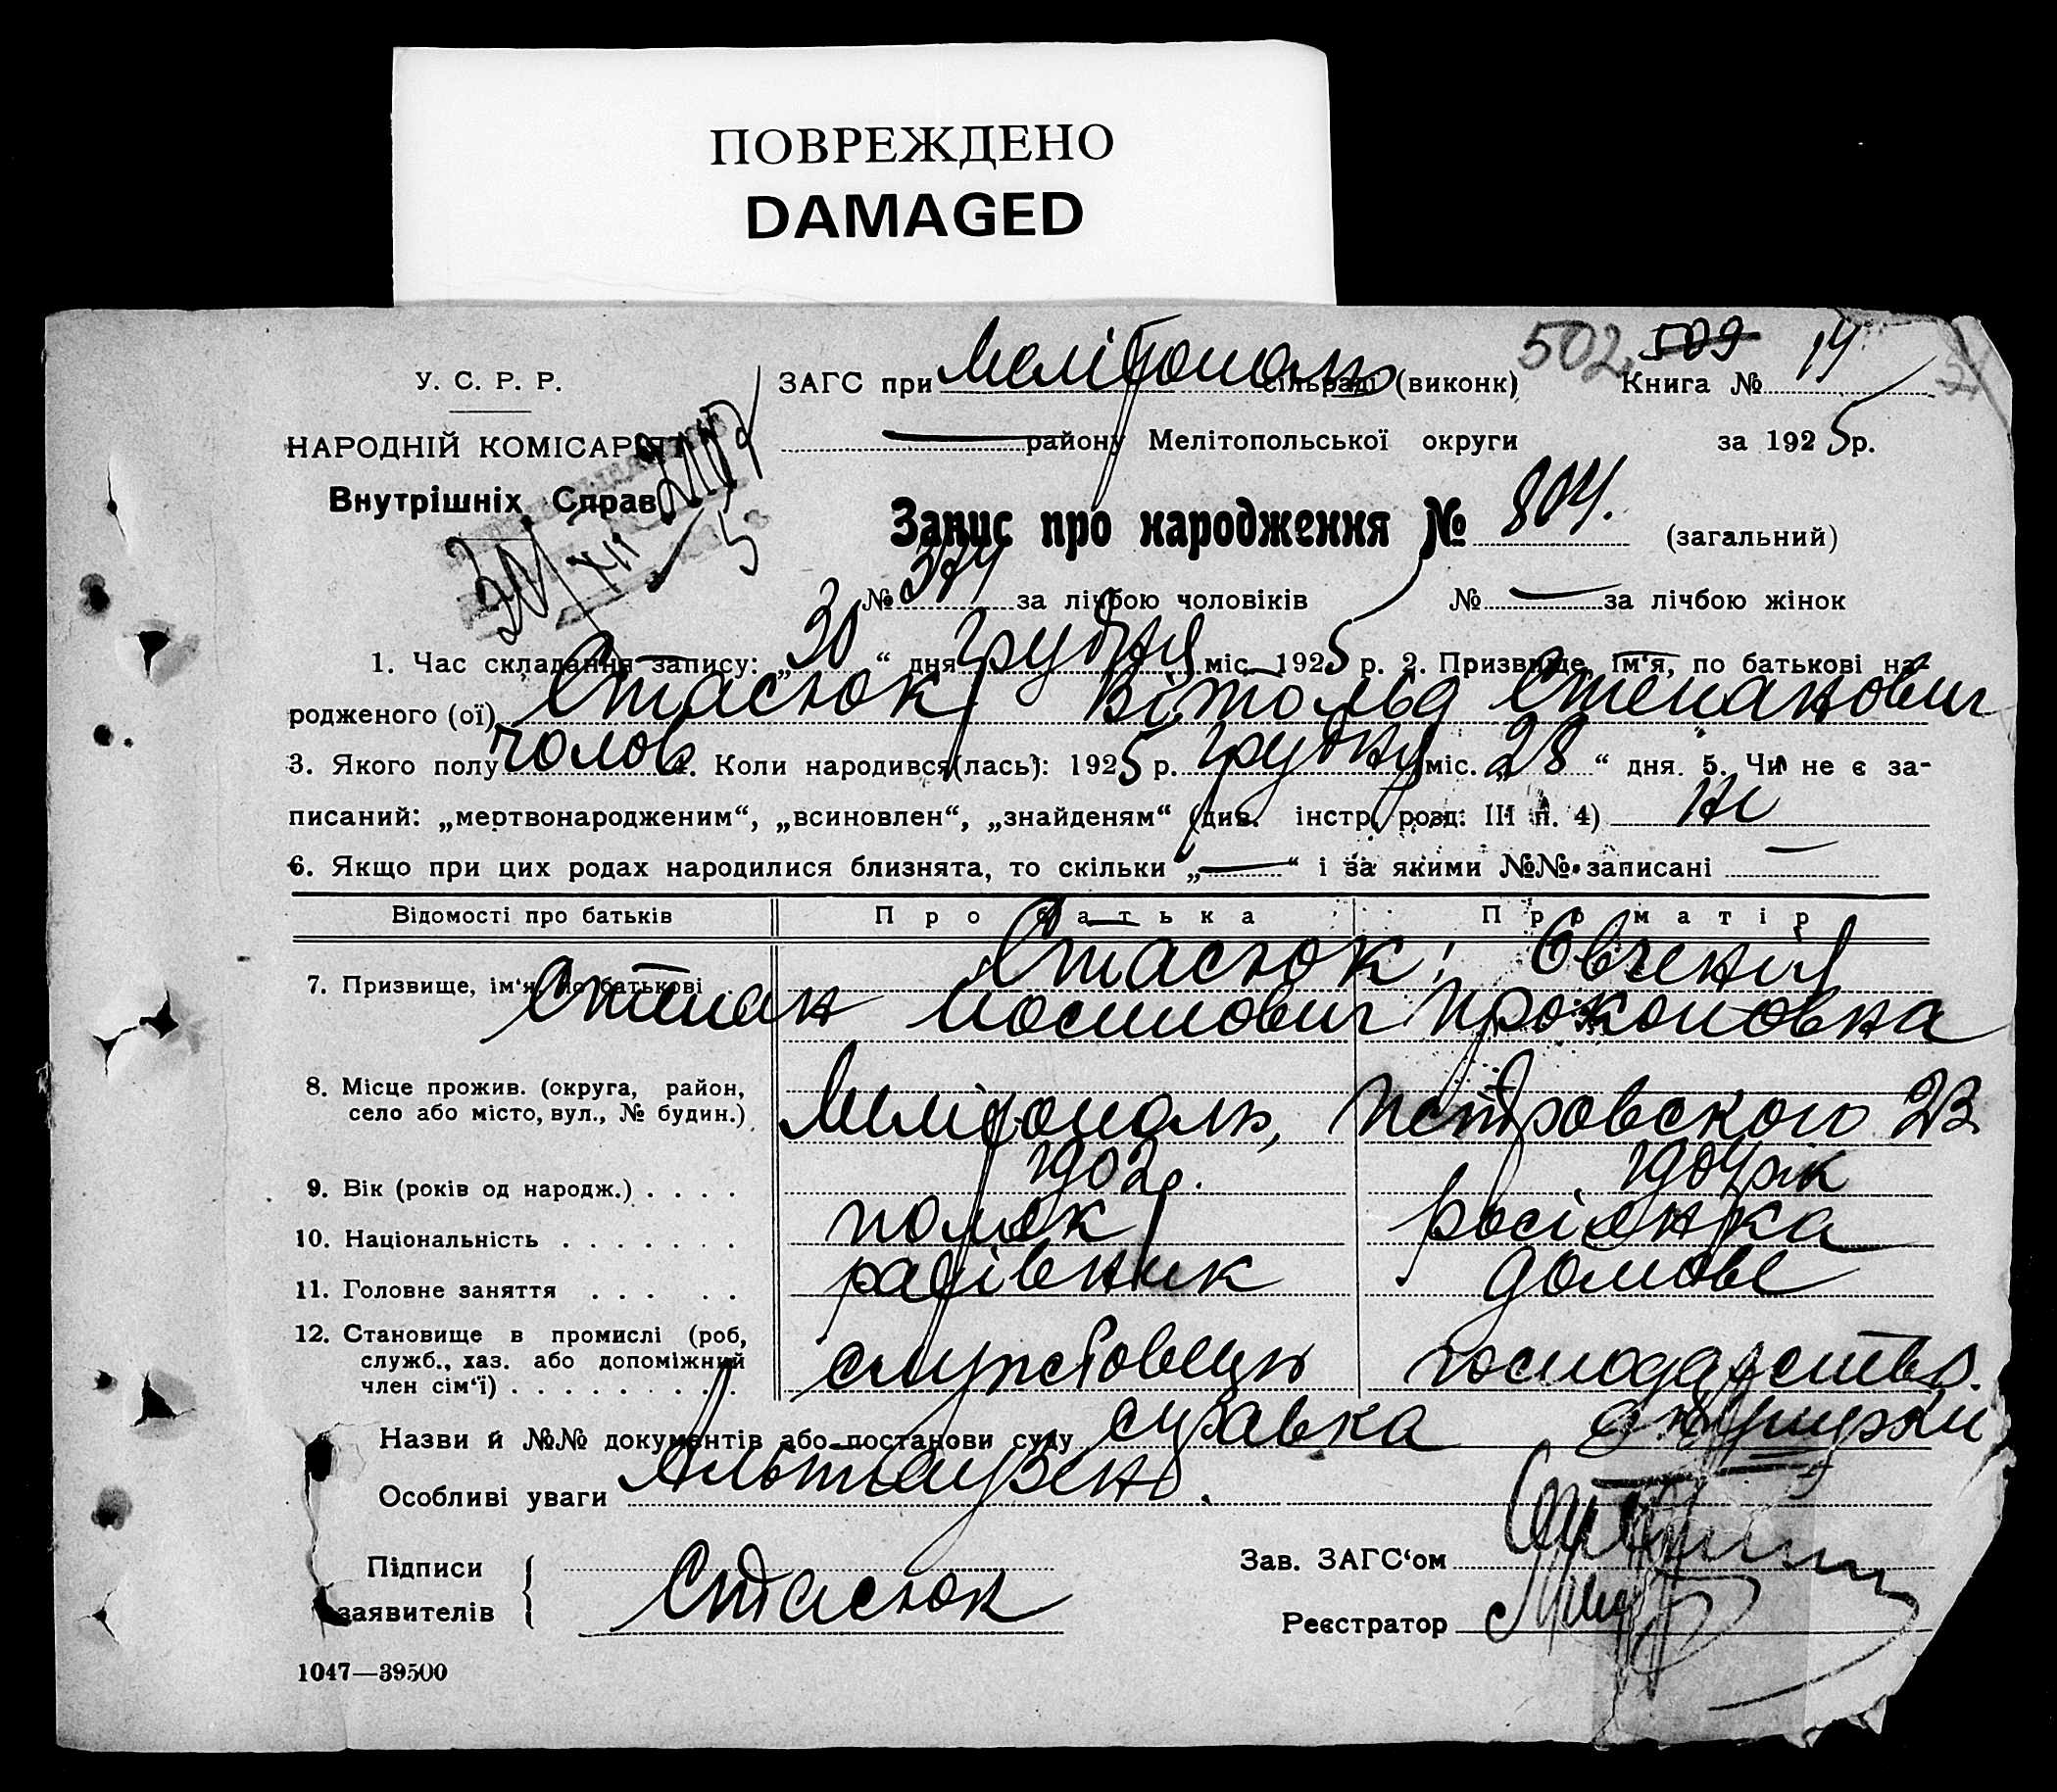 ПОВРЕЖДЕНО
DAMAGED
502 509
У. С. Р. Р. ЗАГС при Мелітополь сільраді (виконк) Книга № 14
НАРОДНІЙ КОМІСАРІЯТ — району Мелітопольської округи за 1925 р.
Внутрішніх Справ
Запис про народження № 804. (загальний)
№ 374 за лічбою чоловіків № — за лічбою жінок
1. Час складання запису: „30“ дня грудня міс. 1925 р. 2. Призвище, ім'я, по батькові на-
родженого (ої) Стасюк Вітольд Степанович
3. Якого полу чолов. 4. Коли народився(лась): 1925 р. грудня міс. „28“ дня. 5. Чи не є за-
писаний: „мертвонародженим“, „всиновлен“, „знайденям“ (див. інстр. розд. III п. 4) ні
6. Якщо при цих родах народилися близнята, то скільки „—“ і за якими №№ записані —
Відомості про батьків Про батька Про матір
7. Призвище, ім'я, по батькові Стасюк Степан Йосипович Євгенія Прокоповна
8. Місце прожив. (округа, район,
село або місто, вул., № будин.) Мелітополь, Петровського 23
9. Вік (років од народж.) . . . . 1902 р. 1904 рік
10. Національність . . . . . . . поляк росіянка
11. Головне заняття . . . . . рахівник домове
12. Становище в промислі (роб,
служб., хаз. або допоміжний
член сім'ї) . . . . . . . . . службовець господарство.
Назви й №№ документів або постанови суду справка акушерки
Особливі уваги Альтгаузен.
Підписи
заявителів Стасюк
Зав. ЗАГС'ом
Реєстратор
1047—39500